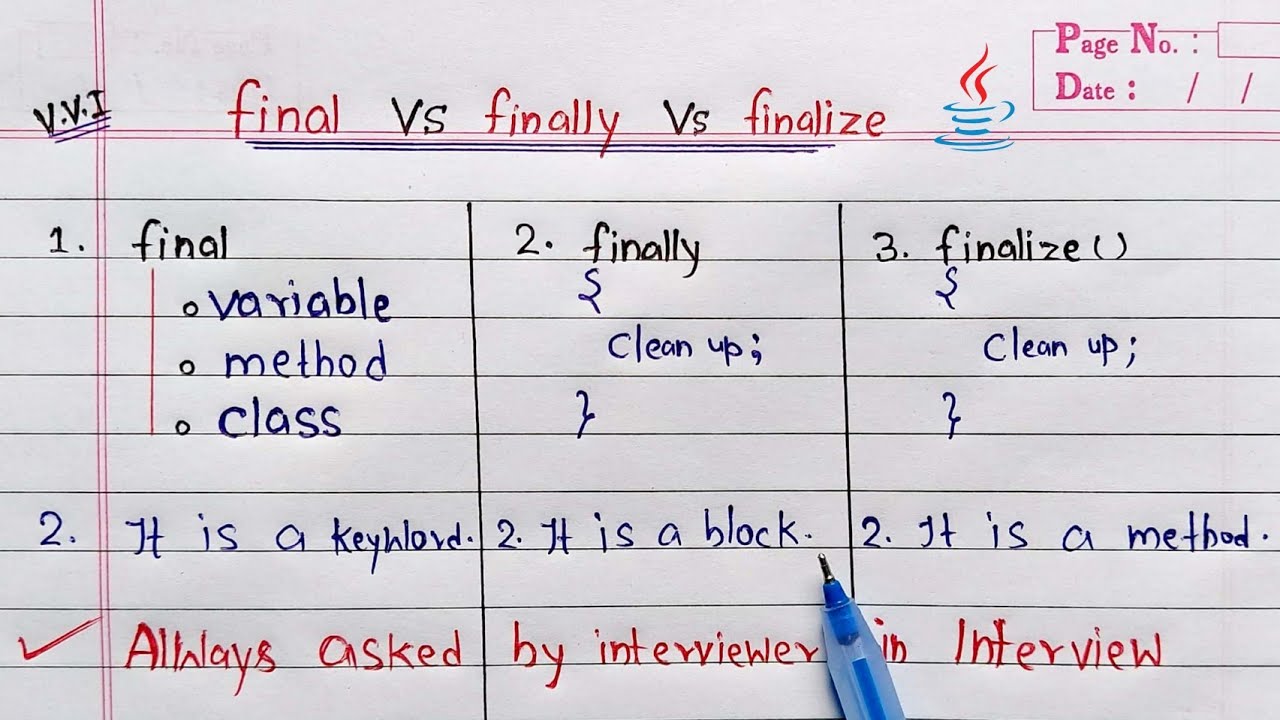 Page No. :
Date : / /
V.V.I
final Vs finally Vs finalize
1. final
variable
method
class
2. finally
{
Clean up;
}
3. finalize()
{
Clean up;
}
2. It is a keyword.
2. It is a block.
2. It is a method.
Allways asked by interviewer in Interview